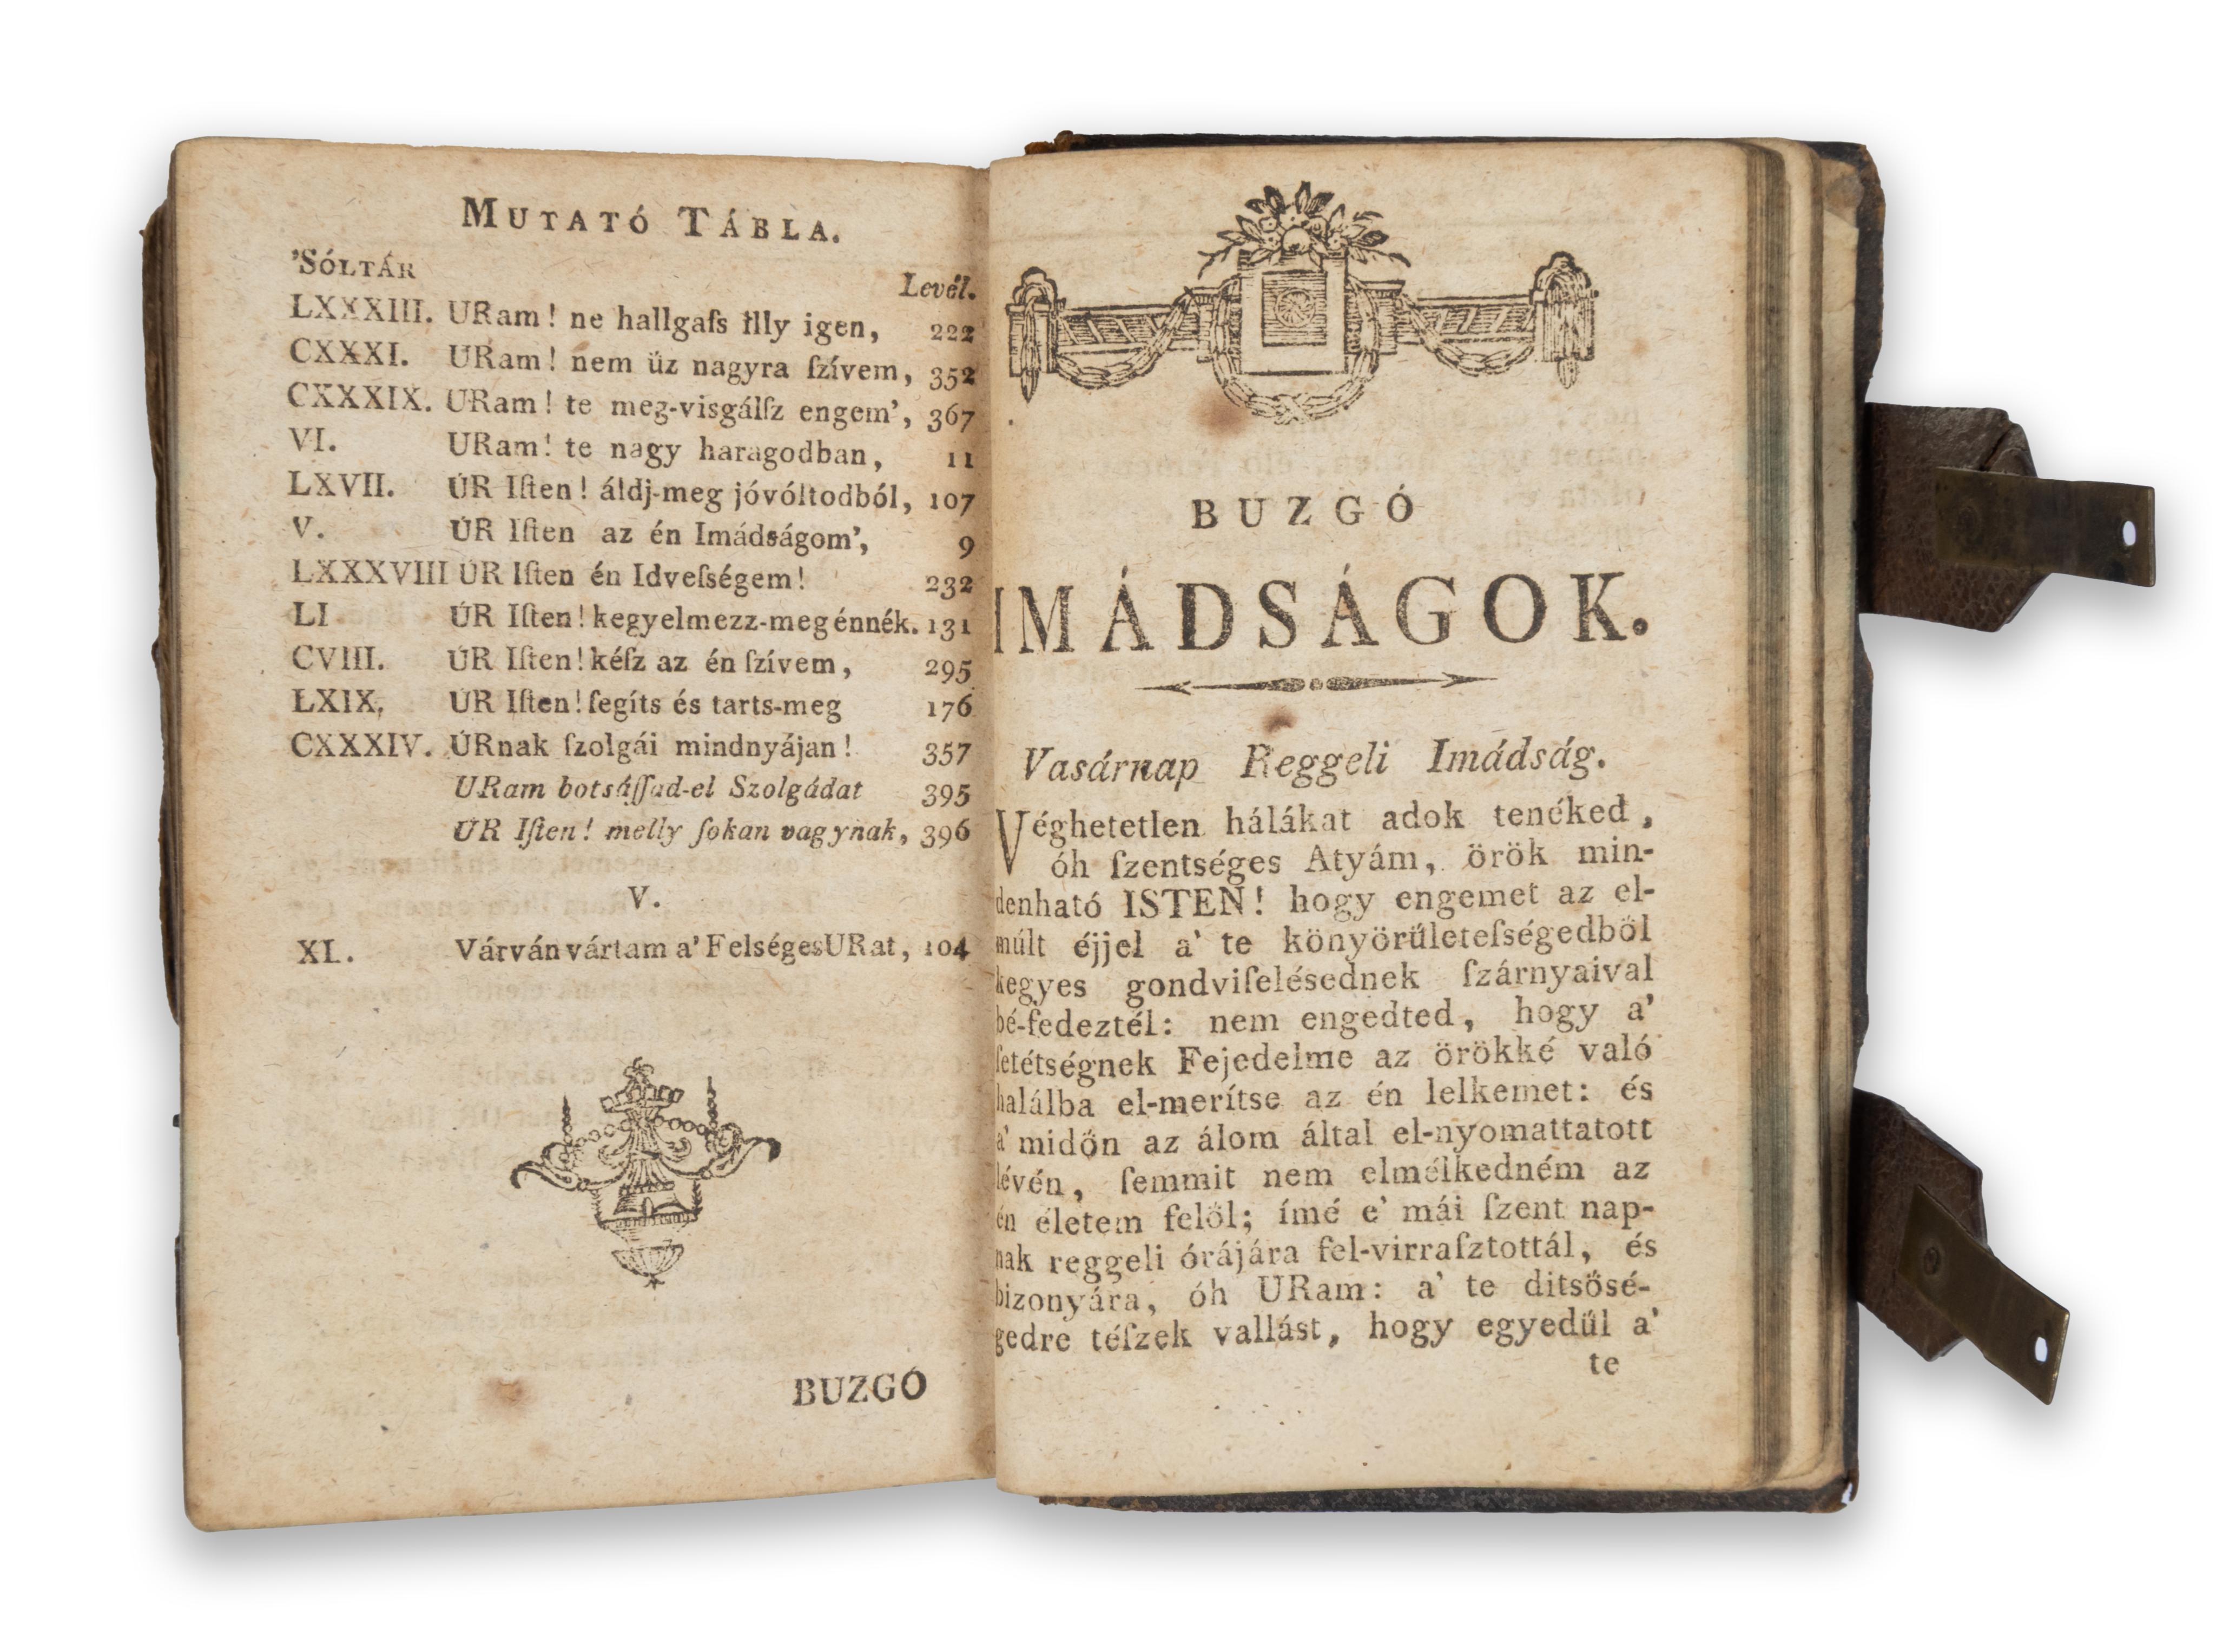 MUTATÓ TÁBLA.
'SÓLTÁR
Levél.
LXXXIII. URam! ne hallgaſs illy igen, 222
CXXXI. URam! nem üz nagyra ſzívem, 352
CXXXIX. URam! te meg-visgálſz engem', 367
VI. URam! te nagy haragodban, 11
LXVII. ÚR Iſten! áldj-meg jóvóltodból, 107
V. ÚR Iſten az én Imádságom', 9
LXXXVIII ÚR Iſten én Idveſségem! 232
LI ÚR Iſten! kegyelmezz-meg énnék. 131
CVIII. ÚR Iſten! kéſz az én ſzívem, 295
LXIX. ÚR Iſten! ſegíts és tarts-meg 176
CXXXIV. ÚRnak ſzolgái mindnyájan! 357
URam botsáſſad-el Szolgádat 395
ÚR Iſten! melly ſokan vagynak, 396
V.
XL. Várván vártam a' Felséges URat, 104
BUZGÓ
BUZGÓ
IMÁDSÁGOK.
Vasárnap Reggeli Imádság.
Véghetetlen hálákat adok tenéked,
óh ſzentséges Atyám, örök min-
denható ISTEN! hogy engemet az el-
múlt éjjel a' te könyörűleteſségedből
kegyes gondviſelésednek ſzárnyaival
bé-fedeztél: nem engedted, hogy a'
ſetétségnek Fejedelme az örökké való
halálba el-merítse az én lelkemet: és
a' midőn az álom által el-nyomattatott
lévén, ſemmit nem elmélkedném az
én életem felől; ímé e' mái ſzent nap-
nak reggeli órájára fel-virraſztottál, és
bizonyára, óh URam: a' te ditsősé-
gedre téſzek vallást, hogy egyedűl a'
te